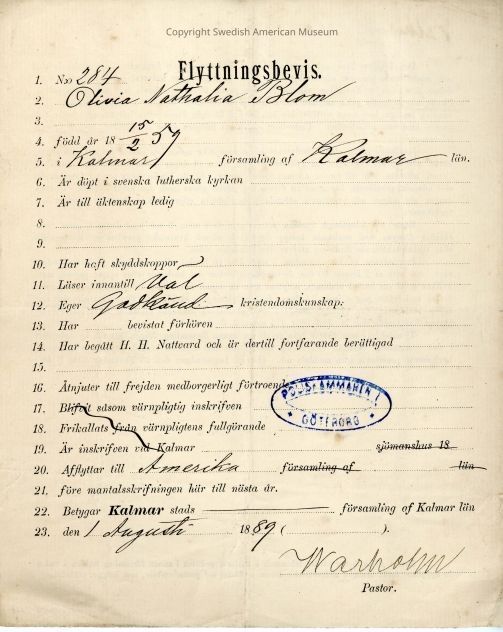 Copyright Swedish American Museum
1. No 284 Flyttningsbevis.
2. Olivia Nathalia Blom
3.
4. född år 18 15/2 57
5. i Kalmar församling af Kalmar län.
6. Är döpt i svenska lutherska kyrkan
7. Är till äktenskap ledig
8.
9.
10. Har haft skyddskoppor
11. Läser innantill Val
12. Eger Godkänd kristendomskunskap:
13. Har bevistat förhören
14. Har begått H. H. Nattvard och är dertill fortfarande berättigad
15.
16. Åtnjuter till frejden medborgerligt förtroende
17. Blifvit såsom värnpligtig inskrifven
18. Frikallats från värnpligtens fullgörande
POLISKAMMAREN I
* GÖTEBORG *
19. Är inskrifven vid Kalmar sjömanshus 18
20. Afflyttar till Amerika församling af län
21. före mantalsskrifningen här till nästa år.
22. Betygar Kalmar stads församling af Kalmar län
23. den 1 Augusti 1889 ( ).
Warholm
Pastor.